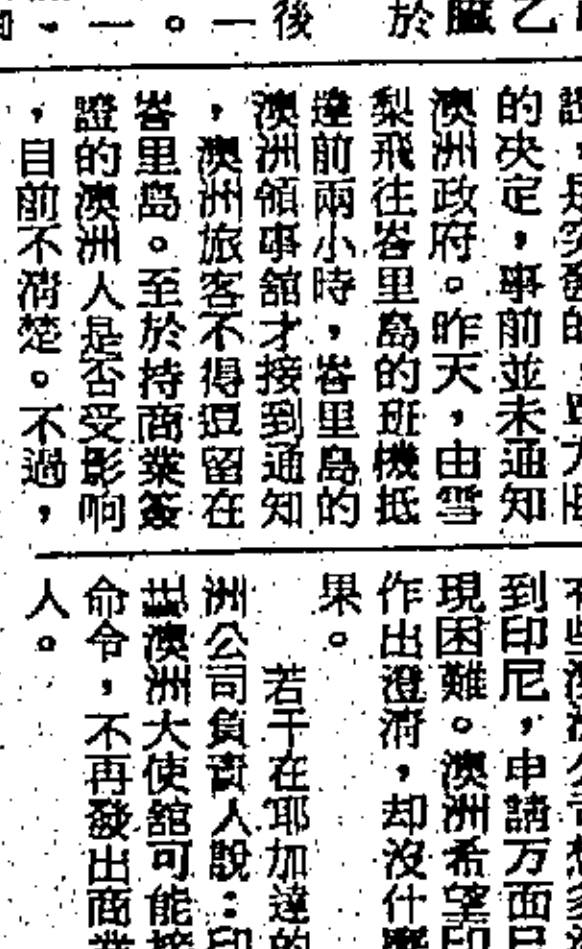 於臟乙
後
一。一
的決定，事前並未通知
澳洲政府。昨天，由雪
梨飛往峇里島的班機抵
達前兩小時，峇里島的
澳洲領事舘才接到通知
，澳洲旅客不得逗留在
峇里島。至於持商業簽
證的澳洲人是否受影响
，自前不淸楚。不過，
到印尼，申請方面
現困難。澳洲希望印
作出澄淸，却沒什
果。
若干在耶加達的
洲公司負責人說：印
澳洲大使舘可能接
命令，不再發出商業
人。